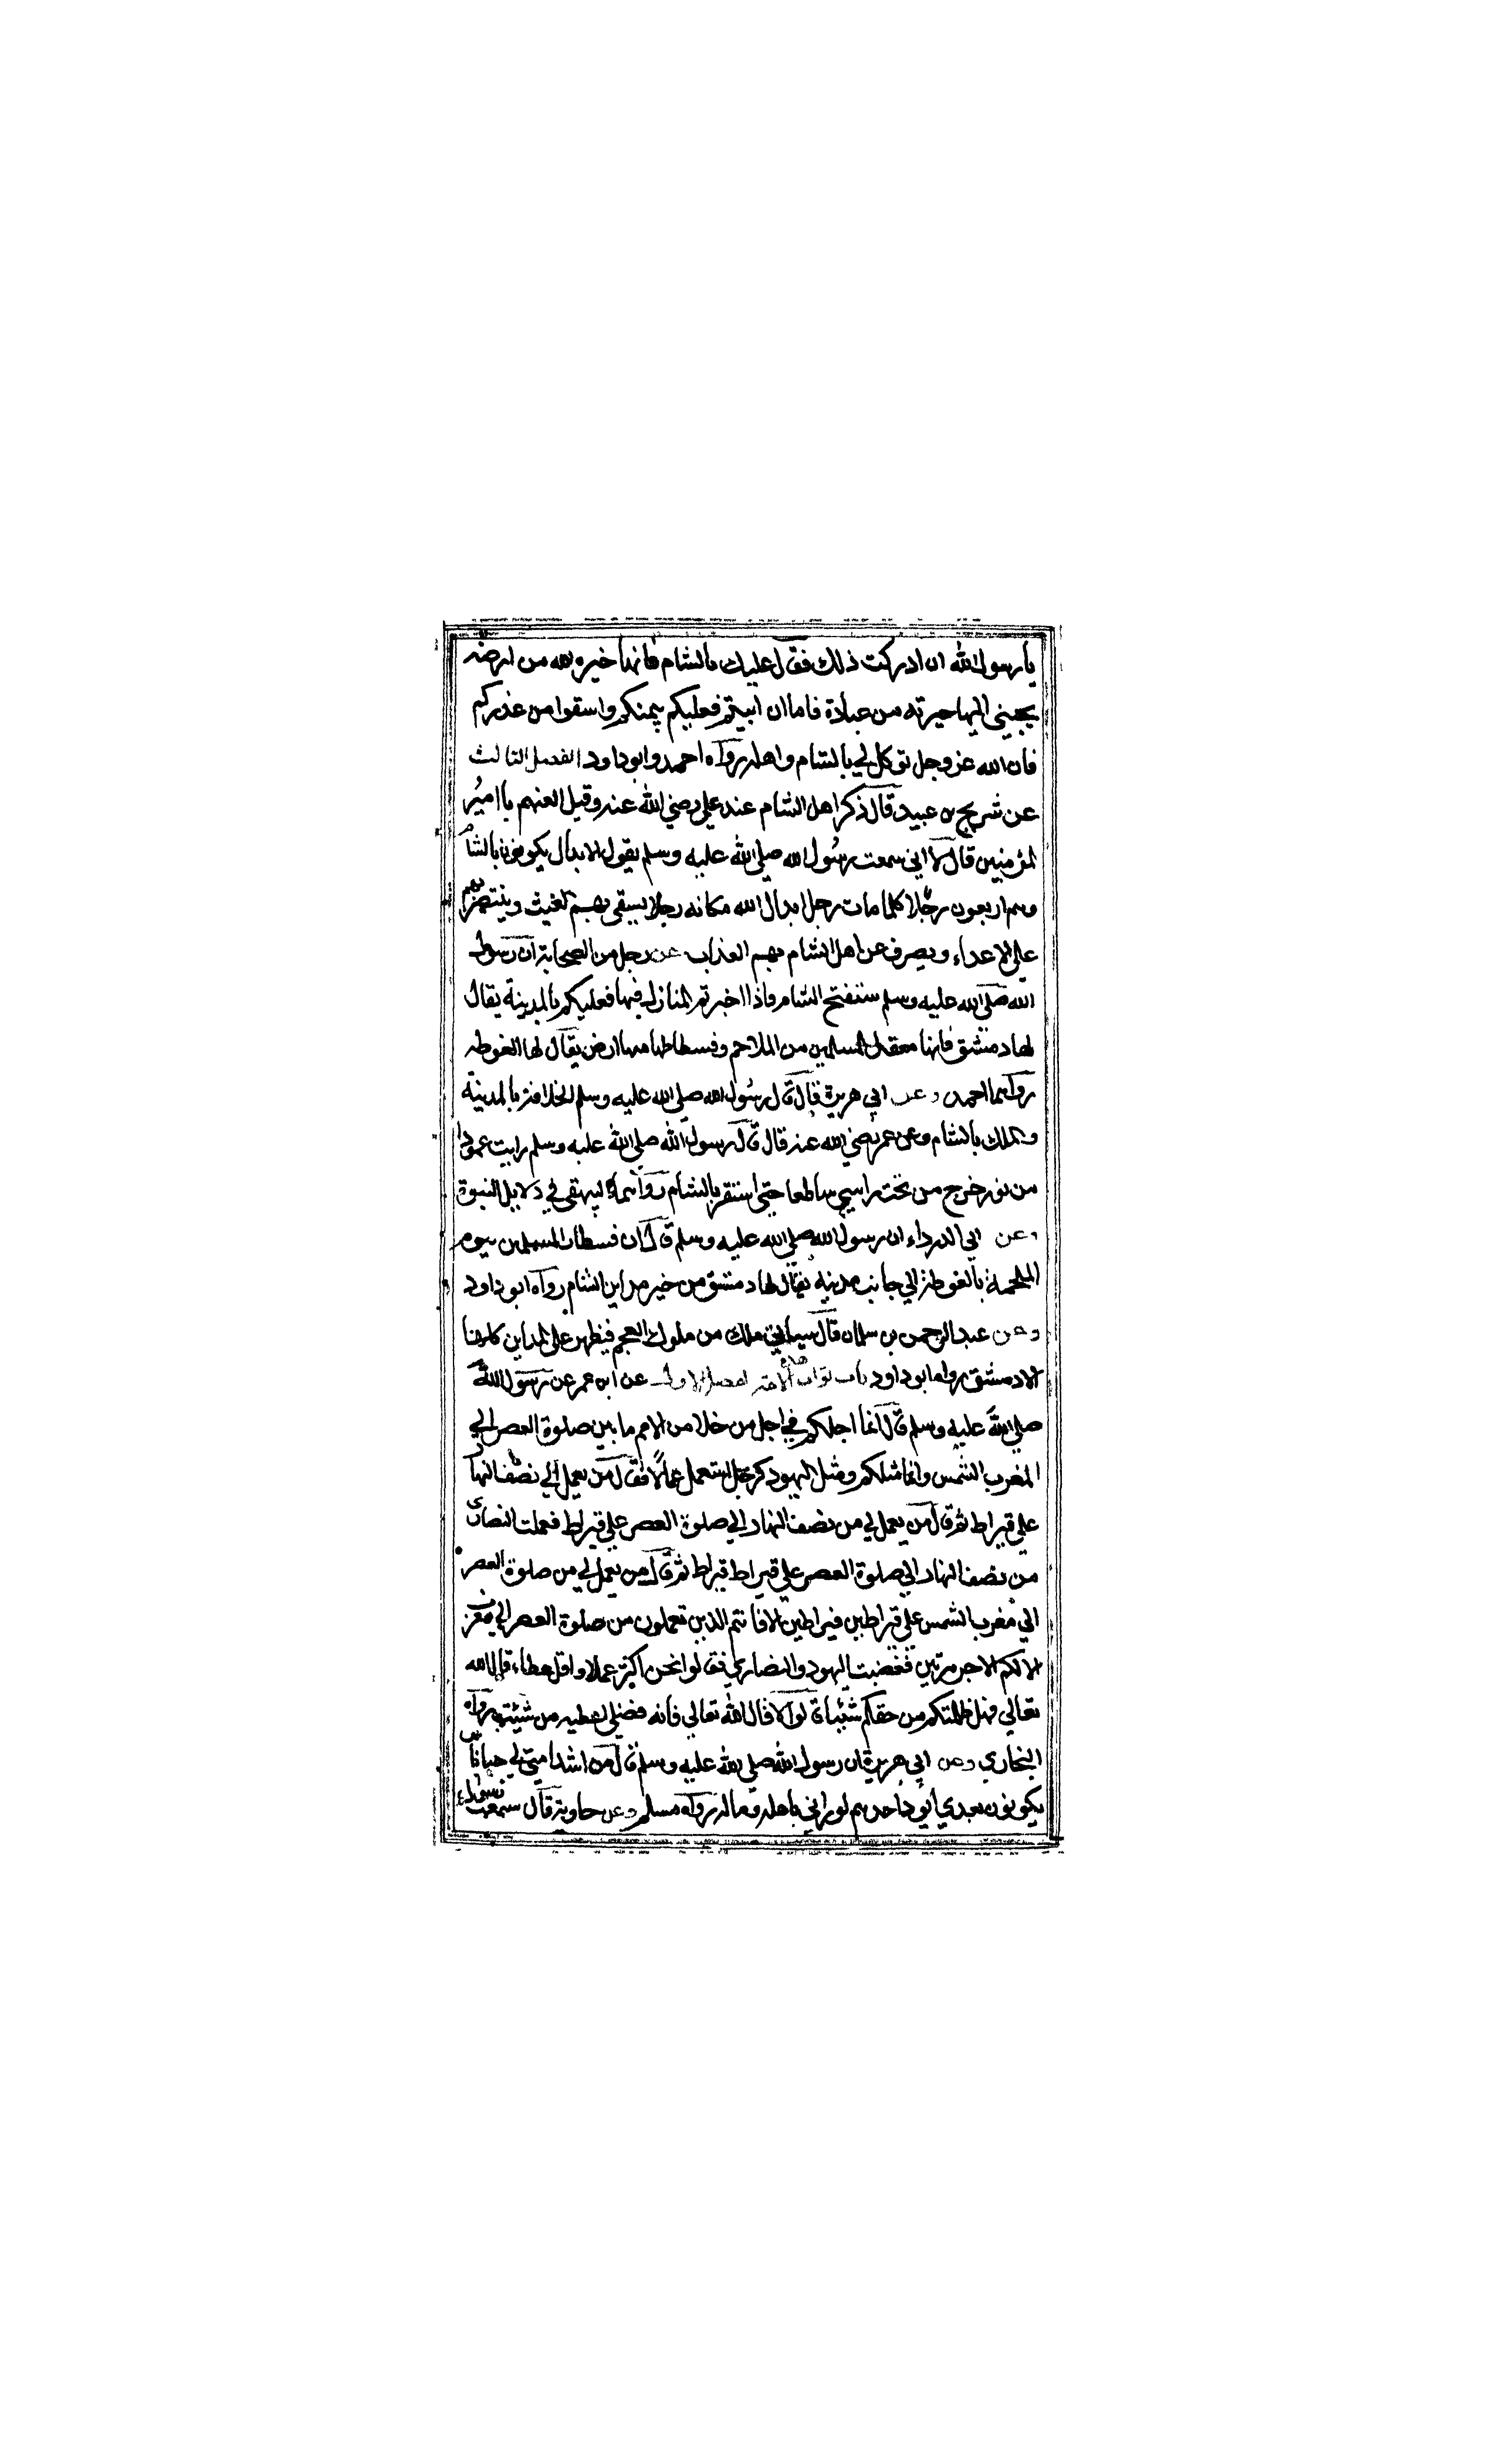 يا رسول الله ان ادركت ذلك فقال عليك بالشام فانها خيرة الله من ارضه
يجبتي اليها خيرته من عبادة فاما ان ابيتم فعليكم بيمنكم واسقوا من غدركم
فان الله عز وجل توكل لي بالشام واهله رواه احمد وابو داود الفصل الثالث
عن شريح بن عبيد قال ذكر اهل الشام عند علي رضي الله عنه وقيل العنهم يا امير
المؤمنين قال لا اني سمعت رسول الله صلي الله عليه وسلم يقول الابدال يكونون بالشام
وهم اربعون رجلا كلما مات رجل ابدال الله مكانه رجلا يسقي بهم الغيث وينتصر بهم
علي الاعداء ويصرف عن اهل الشام بهم العذاب عن رجل من الصحابة ان رسول
الله صلي الله عليه وسلم ستفتح الشام فاذا اخبرتم المنازل فيها فعليكم بالمدينة يقال
لها دمشق فانها معقل المسلمين من الملاحم وفسطاطها منها ارض يقال لها الغوطه
رواهما احمد وعن ابي هريرة قال قال رسول الله صلي الله عليه وسلم الخلافة بالمدينة
والملك بالشام وعن عمر رضي الله عنه قال قال رسول الله صلي الله عليه وسلم رايت عمودا
من نور خرج من تحت راسي ساطعا حتي استقر بالشام رواهما البيهقي في دلايل النبوة
وعن ابي الدرداء ان رسول الله صلي الله عليه وسلم قال ان فسطاط المسلمين يوم
الملحمة بالغوطة الي جانب مدينة يقال لها دمشق من خير مداين الشام رواه ابو داود
وعن عبد الرحمن بن سلمان قال سياتي ملك من ملوك العجم فيظهر علي المداين كلها
الا دمشق رواه ابو داود باب ثواب هذه الامة الفصل الاول عن ابن عمر عن رسول الله
صلي الله عليه وسلم قال انما اجلكم في اجل من خلا من الامم ما بين صلوة العصر الي
المغرب الشمس وانما مثلكم ومثل اليهود كرجل استعمل عمالا فقال من يعمل الي نصف النهار
علي قيراط ثم قال من يعمل لي من نصف النهار الي صلوة العصر علي قيراط فعملت النصاري
من نصف النهار الي صلوة العصر علي قيراط قيراط ثم قال من يعمل لي من صلوة العصر
الي مغرب الشمس علي قيراطين قيراطين الا فانتم الذين تعملون من صلوة العصر الي مغرب
الا لكم الاجر مرتين فغضبت اليهود والنصاري فقالوا نحن اكثر عملا واقل عطاء قال الله
تعالي فهل ظلمتكم من حقكم شيئا قالوا لا قال الله تعالي فانه فضلي اعطيه من شيئت رواه
البخاري وعن ابي هريرة ان رسول الله صلي الله عليه وسلم قال من اشد امتي لي حبا ناس
يكونون بعدي يود احدهم لو راني باهله وماله رواه مسلم وعن معاوية قال سمعت رسول